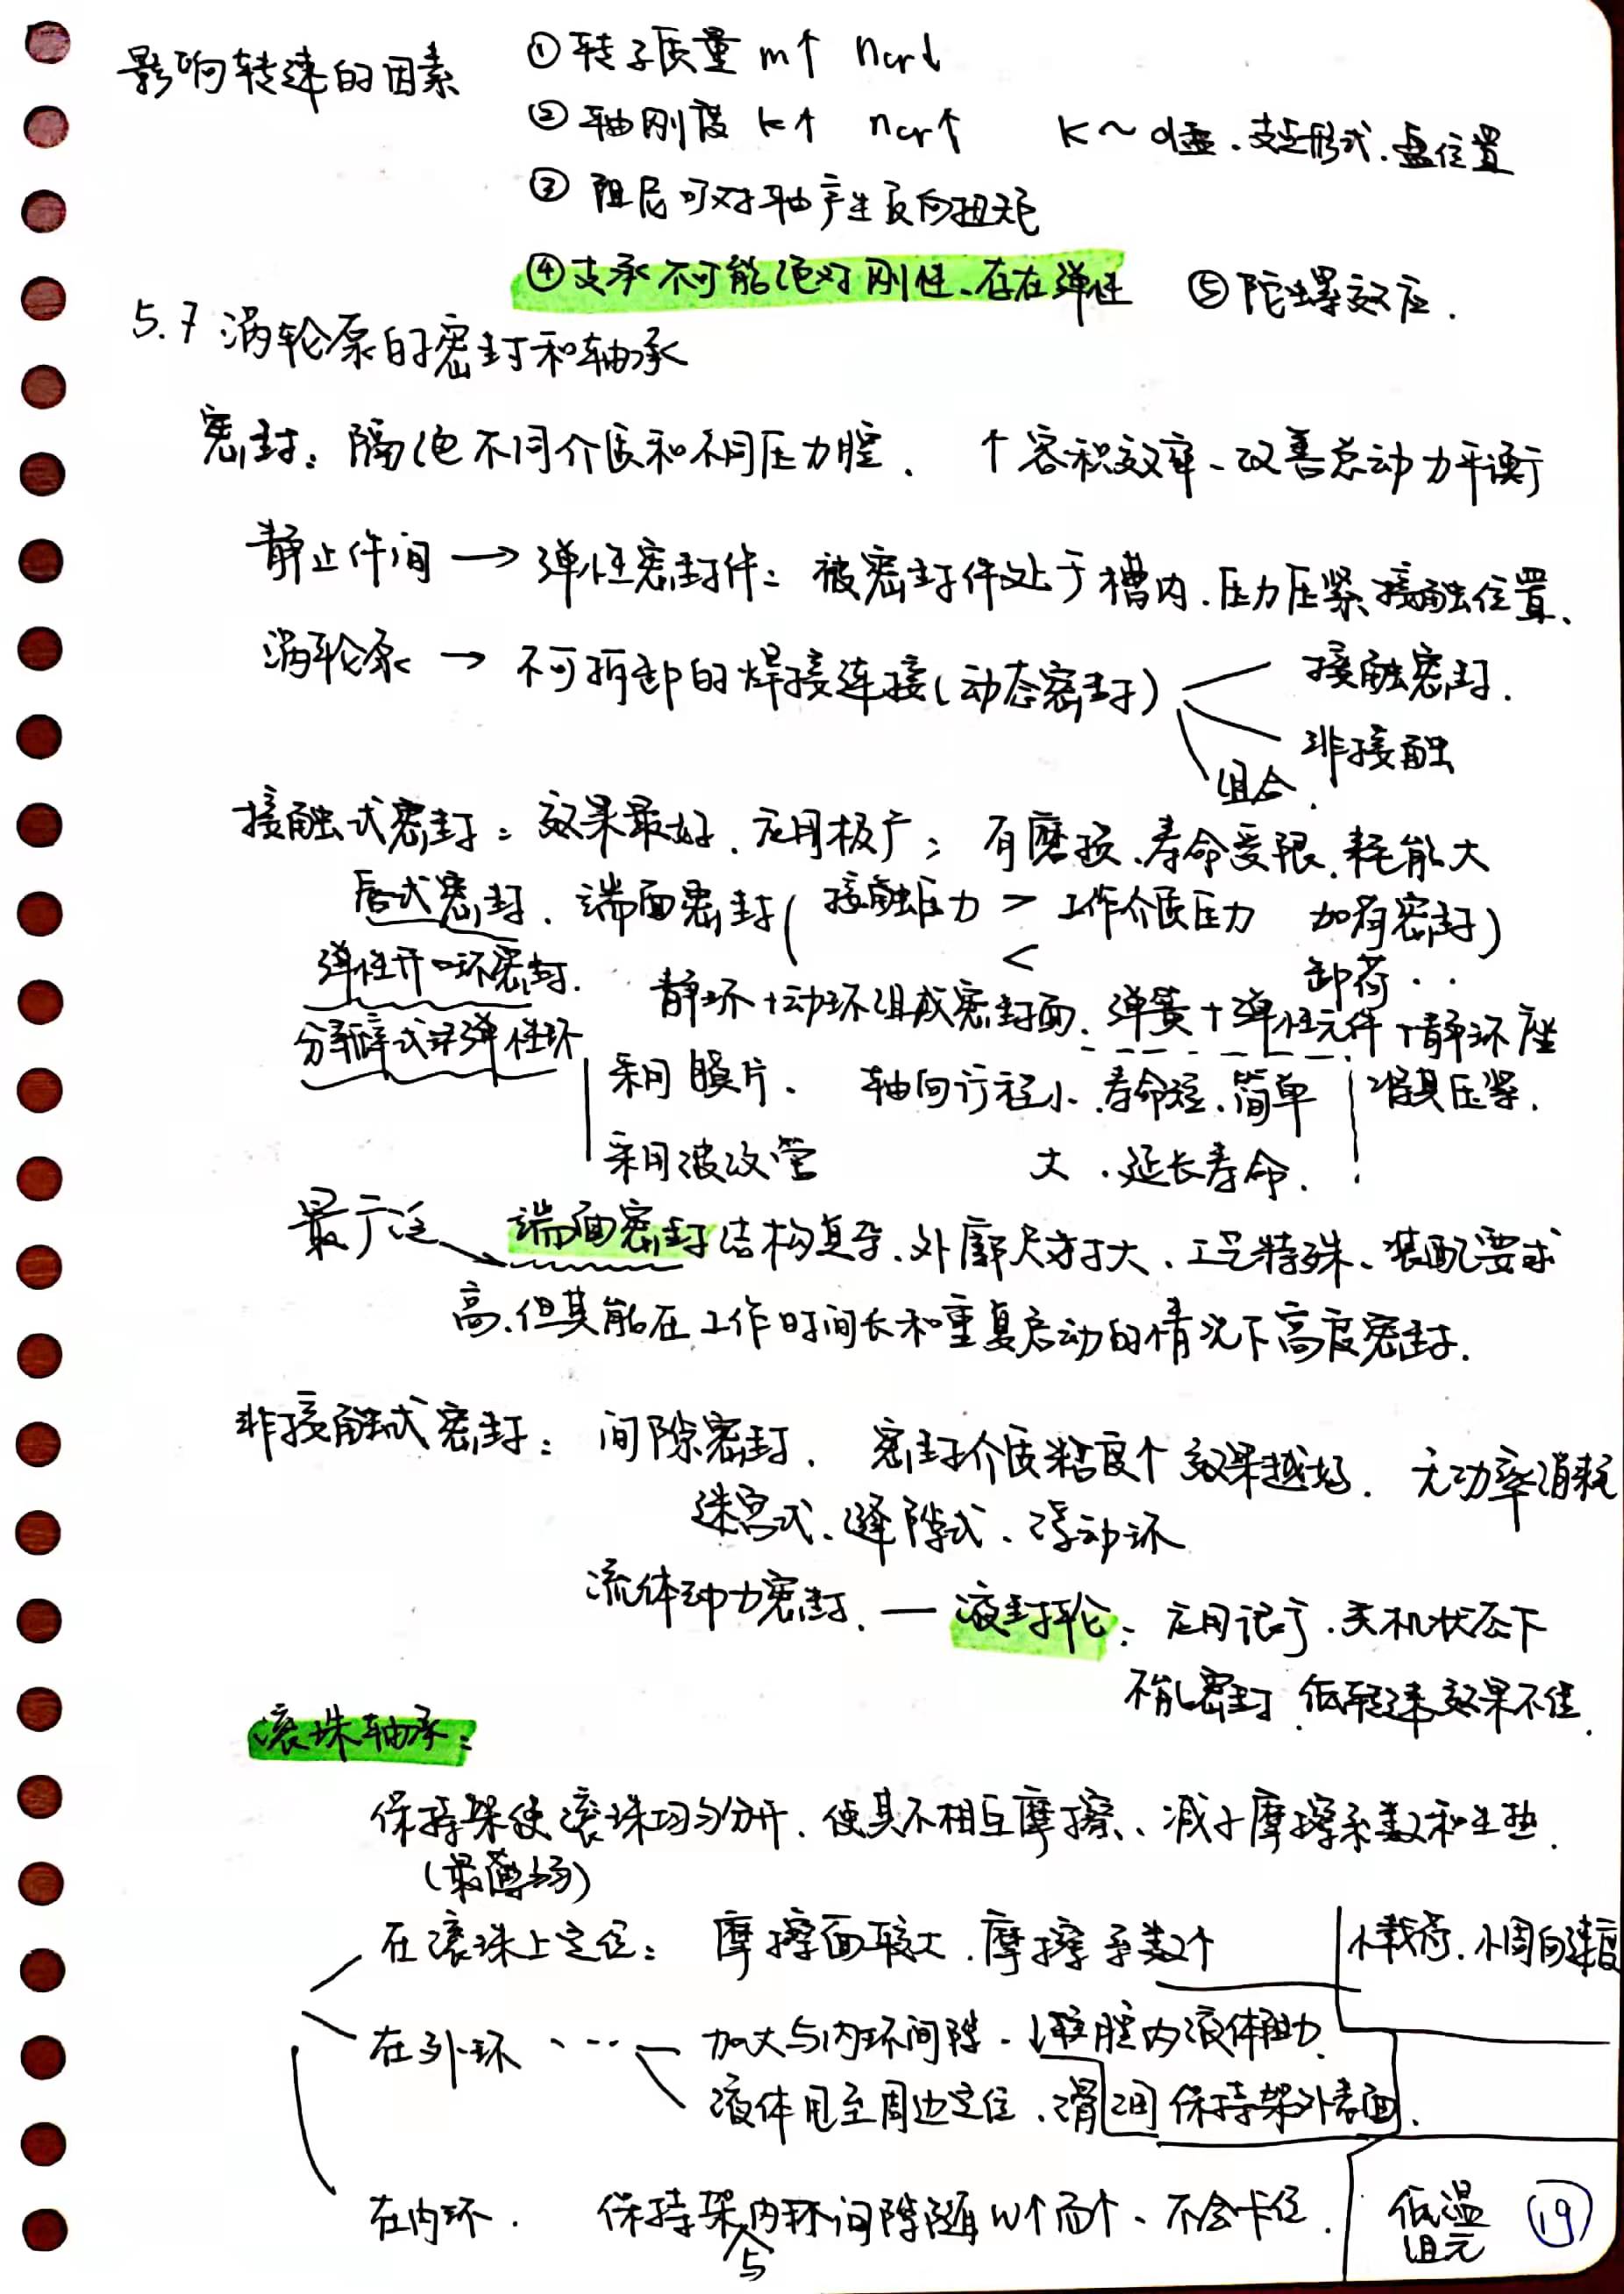 影响转速的因素 ①转子质量 m↑ ncr↓
②轴刚度 k↑ ncr↑ K～d盘.支点形式.盘位置
③阻尼可对轴产生反向扭矩
④支承不可能绝对刚性、存在弹性 ⑤陀螺效应.
5.7 涡轮泵的密封和轴承
密封：隔绝不同介质和不同压力腔. ↑容积效率、改善总动力平衡
静止件间 → 弹性密封件：被密封件处于槽内.压力压紧接触位置、
涡轮泵 → 不可拆卸的焊接连接(动态密封) 接触密封.
非接触
组合.
接触式密封：效果最好.应用极广；有磨损、寿命受限.耗能大
唇式密封. 端面密封( 接触压力 > 工作介质压力 加荷密封)
< 卸荷··
弹性开口环密封.
静环+动环组成密封面. 弹簧+弹性元件+静环座
分瓣式非弹性环
采用膜片. 轴向行程小.寿命短.简单 将其压紧.
采用波纹管 大.延长寿命.
最广泛 端面密封结构复杂、外廓尺寸大、工艺特殊、装配要求
高.但其能在工作时间长和重复启动的情况下高度密封.
非接触式密封：间隙密封. 密封介质粘度↑效果越好. 无功率消耗
迷宫式、缝隙式、浮动环
流体动力密封. — 液封轮：应用 广.关机状态下
不能密封.低转速效果不佳.
滚珠轴承：
保持架使滚珠均匀分开.使其不相互摩擦、减小摩擦系数和生热.
(最薄弱)
在滚珠上定位：摩擦面较大.摩擦系数↑ 小载荷.小周向速度
在外环··· 加大与内环间隙.↓ 腔内液体阻力.
液体甩至周边定位.滑润保持架外表面.
在内环. 保持架与内环间隙随w↑而↑、不会卡住. 低温
组元
19